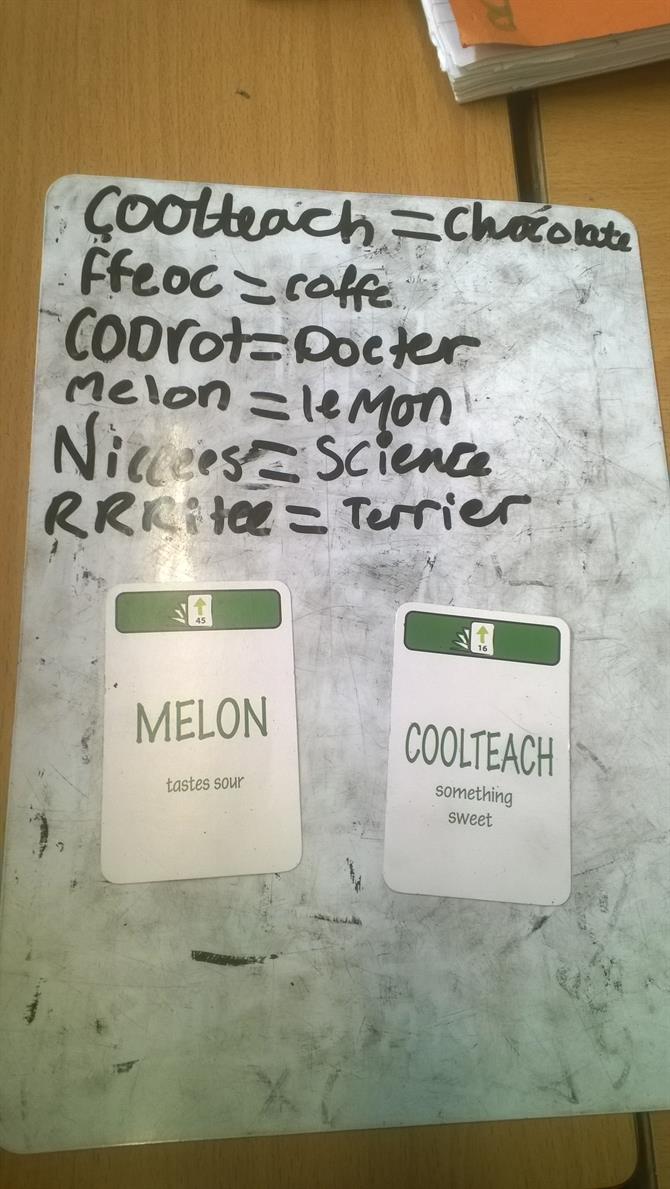 Coolteach = Chocolate
ffeoc = coffe
CODrot = Docter
Melon = leMon
Niccees = Science
RRRitee = Terrier
45
MELON
tastes sour
16
COOLTEACH
something
sweet